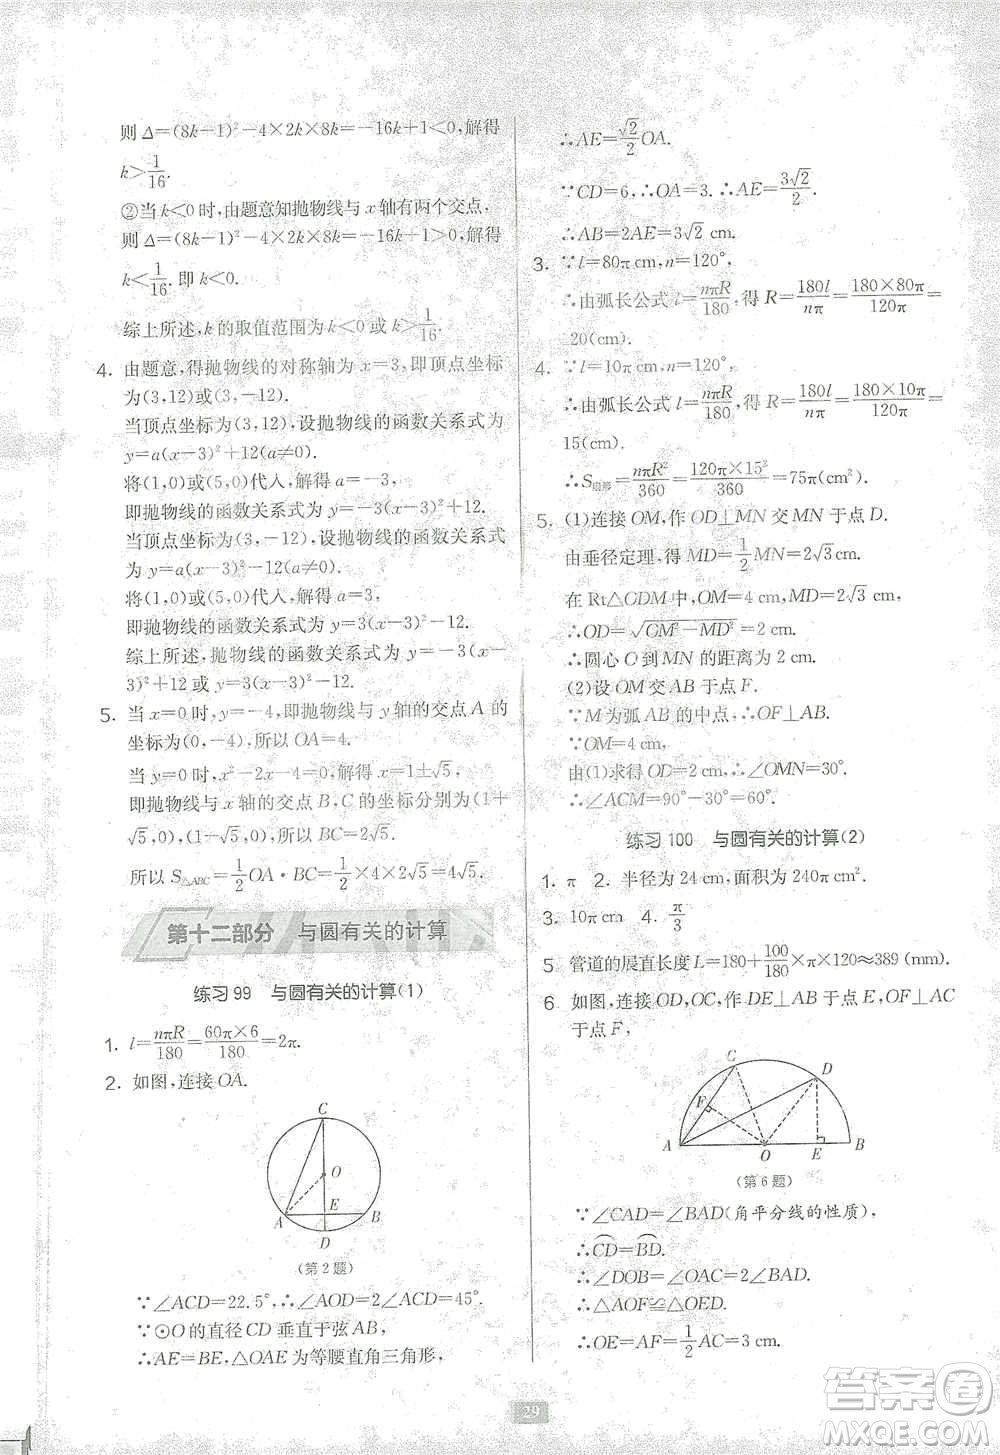 则 Δ=(8k-1)²-4×2k×8k=-16k+1<0,解得
k>1/16.
②当 k<0 时,由题意知抛物线与 x 轴有两个交点,
则 Δ=(8k-1)²-4×2k×8k=-16k+1>0,解得
k<1/16. 即 k<0.
综上所述,k 的取值范围为 k<0 或 k>1/16.
4. 由题意,得抛物线的对称轴为 x=3,即顶点坐标
为(3,12)或(3,-12).
当顶点坐标为(3,12),设抛物线的函数关系式为
y=a(x-3)²+12(a≠0).
将(1,0)或(5,0)代入,解得 a=-3,
即抛物线的函数关系式为 y=-3(x-3)²+12.
当顶点坐标为(3,-12),设抛物线的函数关系式
为 y=a(x-3)²-12(a≠0).
将(1,0)或(5,0)代入,解得 a=3,
即抛物线的函数关系式为 y=3(x-3)²-12.
综上所述,抛物线的函数关系式为 y=-3(x-
3)²+12 或 y=3(x-3)²-12.
5. 当 x=0 时,y=-4,即抛物线与 y 轴的交点 A 的
坐标为(0,-4),所以 OA=4.
当 y=0 时,x²-2x-4=0,解得 x=1±√5,
即抛物线与 x 轴的交点 B,C 的坐标分别为(1+
√5,0),(1-√5,0),所以 BC=2√5,
所以 S△ABC=1/2 OA·BC=1/2×4×2√5=4√5.
第十二部分 与圆有关的计算
练习 99 与圆有关的计算(1)
1. l=nπR/180=60π×6/180=2π.
2. 如图,连接 OA.
C
O
A E B
D
(第 2 题)
∵∠ACD=22.5°,∴∠AOD=2∠ACD=45°.
∵⊙O 的直径 CD 垂直于弦 AB,
∴AE=BE,△OAE 为等腰直角三角形,
∴AE=√2/2 OA.
∵CD=6,∴OA=3.∴AE=3√2/2.
∴AB=2AE=3√2 cm.
3. ∵l=80π cm,n=120°,
∴由弧长公式 l=nπR/180,得 R=180l/nπ=180×80π/120π=
120(cm).
4. ∵l=10π cm,n=120°,
∴由弧长公式 l=nπR/180,得 R=180l/nπ=180×10π/120π=
15(cm).
∴S扇形=nπR²/360=120π×15²/360=75π(cm²).
5. (1)连接 OM,作 OD⊥MN 交 MN 于点 D.
由垂径定理,得 MD=1/2 MN=2√3 cm.
在 Rt△ODM 中,OM=4 cm,MD=2√3 cm,
∴OD=√(OM²-MD²)=2 cm.
∴圆心 O 到 MN 的距离为 2 cm.
(2)设 OM 交 AB 于点 F.
∵M 为弧 AB 的中点,∴OF⊥AB.
∵OM=4 cm,
由(1)求得 OD=2 cm,∴∠OMN=30°.
∴∠ACM=90°-30°=60°.
练习 100 与圆有关的计算(2)
1. π 2. 半径为 24 cm,面积为 240π cm².
3. 10π cm 4. π/3
5 管道的展直长度 L=180+100/180×π×120≈389(mm).
6. 如图,连接 OD,OC,作 DE⊥AB 于点 E,OF⊥AC
于点 F,
C
D
F
A O E B
(第 6 题)
∵∠CAD=∠BAD(角平分线的性质),
∴CD=BD.
∴∠DOB=∠OAC=2∠BAD.
∴△AOF≌△OED.
∴OE=AF=1/2 AC=3 cm.
29
答案圈
MXQE.COM